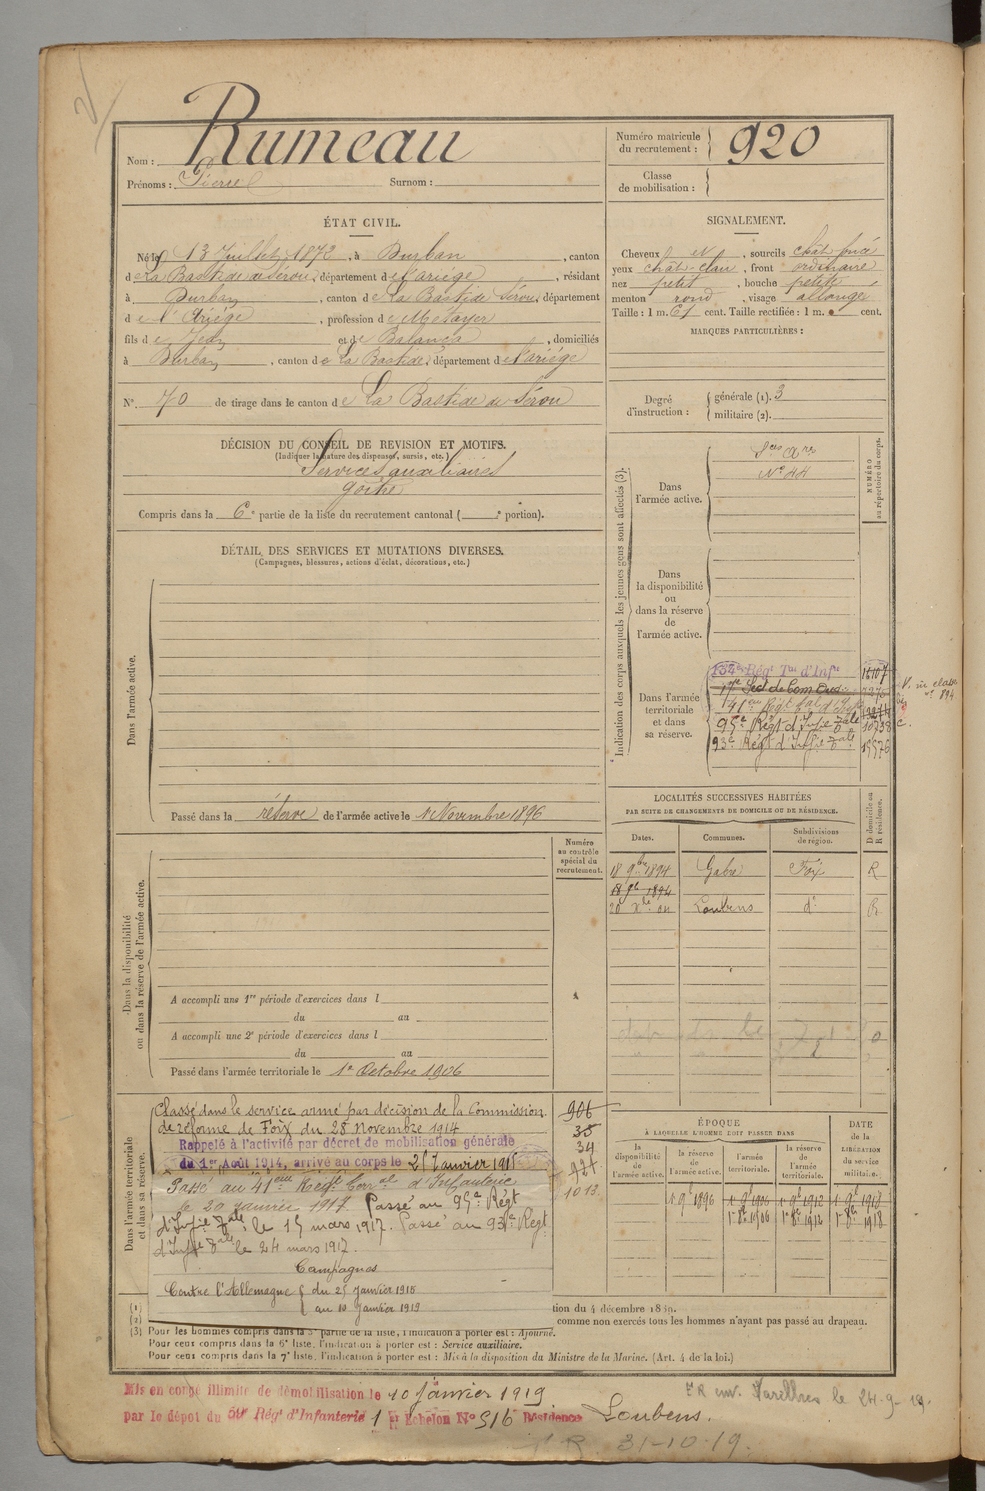 Nom : Rumeau
Prénoms : Pierre Surnom :
Numéro matricule du recrutement : 920
Classe de mobilisation :
ÉTAT CIVIL.
Né le 13 Juillet 1872, à Durban, canton
de La Bastide de Sérou, département de l'ariège, résidant
à Durban, canton de La Bastide Sérou, département
de l'Ariège, profession de Métayer
fils de Jean et de Balança, domiciliés
à Durban, canton de La Bastide, département de l'ariège
N° 70 de tirage dans le canton de La Bastide de Sérou
SIGNALEMENT.
Cheveux et, sourcils chât-foncé
yeux chât-clair, front ordinaire
nez petit, bouche petite
menton rond, visage allongé
Taille : 1 m. 61 cent. Taille rectifiée : 1 m. cent.
MARQUES PARTICULIÈRES :
Degré d'instruction : générale (1). 3
militaire (2).
DÉCISION DU CONSEIL DE REVISION ET MOTIFS.
(Indiquer la nature des dispenses, sursis, etc.)
Services auxiliaires
goitre
Compris dans la 6e partie de la liste du recrutement cantonal ( e portion).
DÉTAIL DES SERVICES ET MUTATIONS DIVERSES.
(Campagnes, blessures, actions d'éclat, décorations, etc.)
Dans l'armée active.
Passé dans la réserve de l'armée active le 1 Novembre 1896
Indication des corps auxquels les jeunes gens sont affectés (3).
NUMÉRO au répertoire du corps.
Dans l'armée active.
Sces Ares
N° 44
Dans la disponibilité ou dans la réserve de l'armée active.
Dans l'armée territoriale et dans sa réserve.
134e Régt Tal d'Infie 15107
17e Sect de Com Ouv
141e Régt
95e Régt d'Infie Tale 10738
93e Régt d'Infie Tale 15576
V. sa classe
n° 894
LOCALITÉS SUCCESSIVES HABITÉES
PAR SUITE DE CHANGEMENTS DE DOMICILE OU DE RÉSIDENCE.
Dates. Communes. Subdivisions de région. D domicile ou R résidence.
18 9bre 1894 Gabre Foix R
18 9bre 1894
20 Xbre Loubens d° R
Numéro au contrôle spécial du recrutement.
Dans la disponibilité ou dans la réserve de l'armée active.
A accompli une 1re période d'exercices dans l
du au
A accompli une 2e période d'exercices dans l
du au
Passé dans l'armée territoriale le 1er Octobre 1906
Dans l'armée territoriale et dans sa réserve.
Classé dans le service armé par décision de la Commission
de réforme de Foix du 28 novembre 1914
Rappelé à l'activité par décret de mobilisation générale
du 1er Août 1914, arrivé au corps le 25 Janvier 1915
Passé au 41eme Régt Terral d'Infanterie
le 20 janvier 1917 Passé au 95e Régt
d'Infie Tale le 15 mars 1917. Passé au 93e Régt
d'Infie Tale le 24 mars 1917.
Campagnes
Contre l'Allemagne { du 25 Janvier 1915
{ au 10 Janvier 1919
906
35
34
1013
ÉPOQUE
À LAQUELLE L'HOMME DOIT PASSER DANS
la disponibilité de l'armée active. la réserve de l'armée active. l'armée territoriale. la réserve de l'armée territoriale.
DATE de la LIBÉRATION du service militaire.
1 9bre 1896 1 9bre 1906 1 9bre 1912 1 9bre 1918
1er 8bre 1906 1er 8bre 1912 1er 8bre 1918
(1)
(2)
tion du 4 décembre 1889.
comme non exercés tous les hommes n'ayant pas passé au drapeau.
(3) Pour les hommes compris dans la 5e partie de la liste, l'indication à porter est : Ajourné.
Pour ceux compris dans la 6e liste, l'indication à porter est : Service auxiliaire.
Pour ceux compris dans la 7e liste, l'indication à porter est : Mis à la disposition du Ministre de la Marine. (Art. 4 de la loi.)
Mis en congé illimité de démobilisation le 10 Janvier 1919
par le dépôt du 59e Régt d'Infanterie 1er Echelon N° 516 Résidence Loubens.
FR env. Varilhes le 24-9-19.
F.R. 31-10-19.